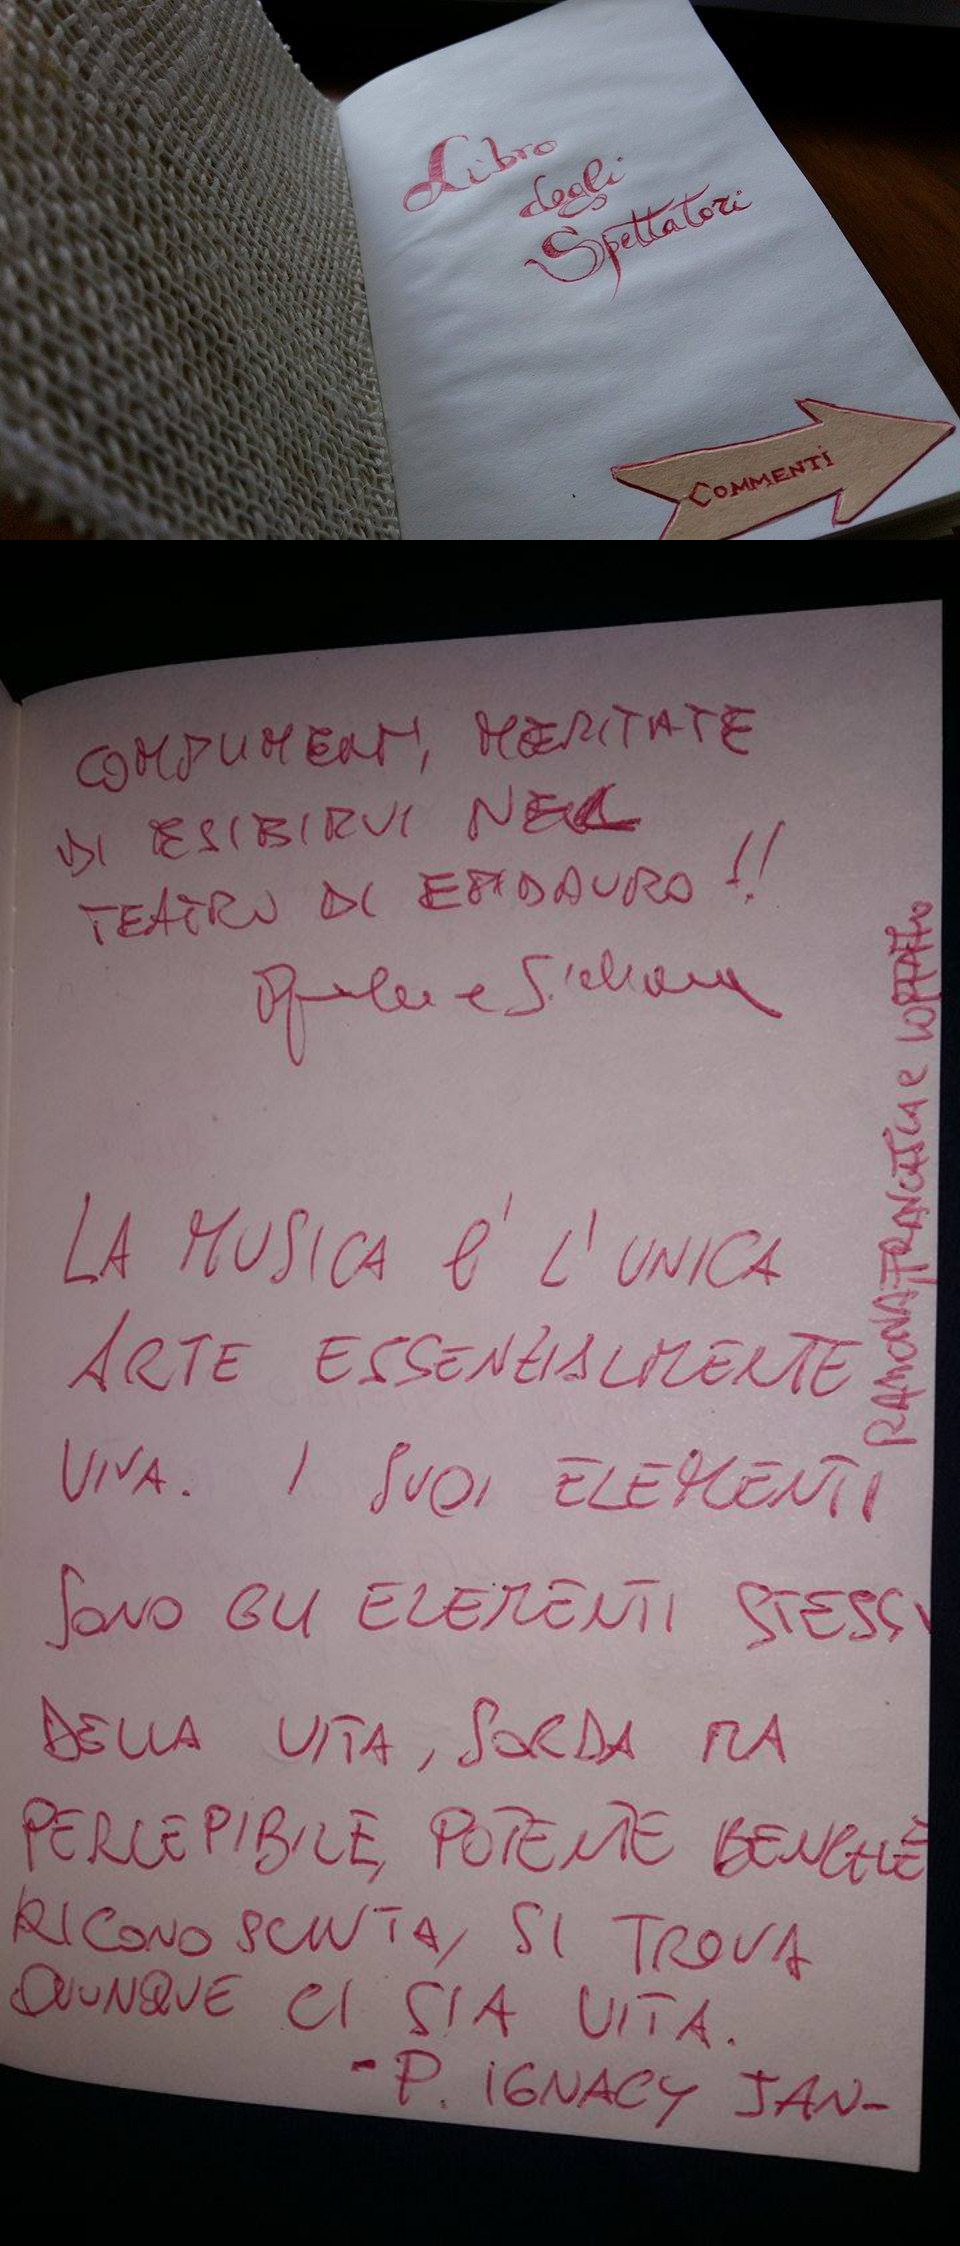 Libro
degli
Spettatori
COMMENTI
COMPLIMENTI, MERITATE
DI ESIBIRVI NEL
TEATRO DI EPIDAURO !!
e
LA MUSICA è L'UNICA
ARTE ESSENZIALMENTE
VIVA. I SUOI ELEMENTI
SONO GLI ELEMENTI STESSI
DELLA VITA, SORDA MA
PERCEPIBILE, POTENTE BENCHÈ
RICONOSCIUTA, SI TROVA
OVUNQUE CI SIA VITA.
- P. IGNACY JAN-
RAMONA, FRANCESCA e